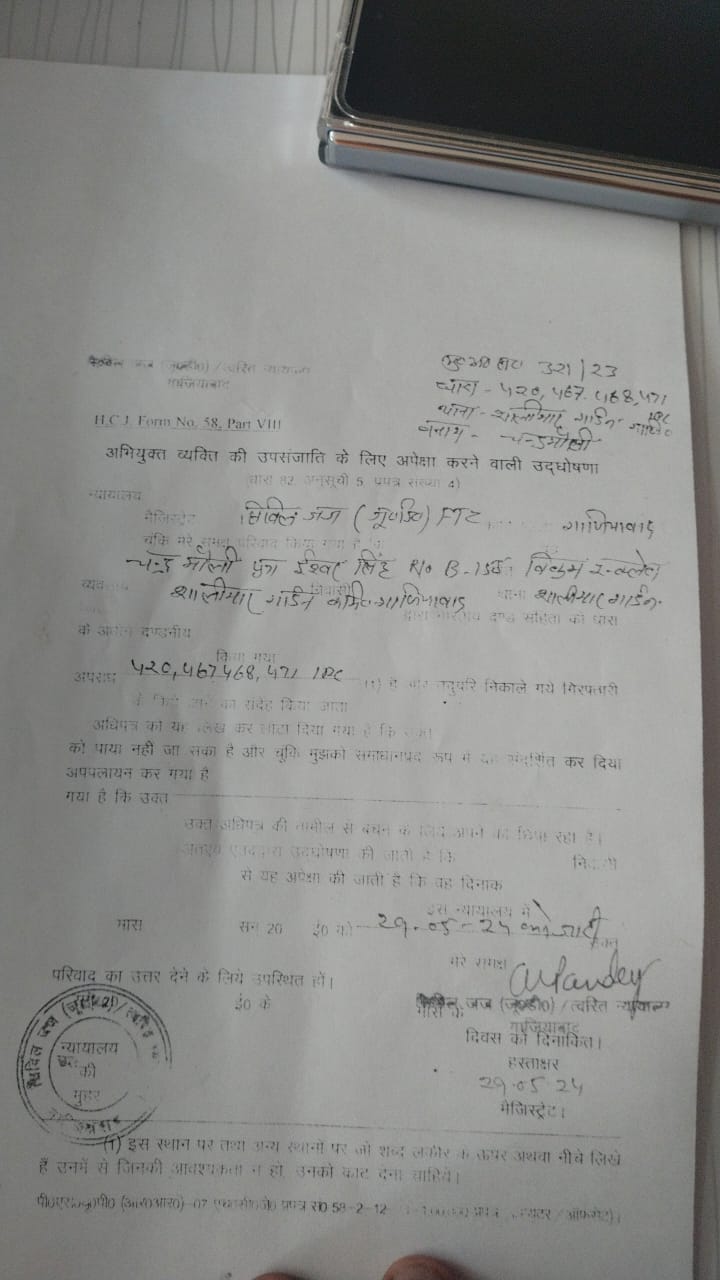 जज (जू०डि०) / त्वरित न्यायालय
गाजियाबाद
321/23
धारा - 420, 467, 468, 471 IPC
थाना - शालीमार गार्डन
बनाम - चन्द्रमौली
H.C.J. Form No. 58, Part VIII
अभियुक्त व्यक्ति की उपसंजाति के लिए अपेक्षा करने वाली उद्घोषणा
(धारा 82 अनुसूची 5 प्रपत्र संख्या 4)
न्यायालय
मैजिस्ट्रेट सिविल जज (जू०डि०) FTC गाजियाबाद
चूंकि मेरे समक्ष परिवाद किया गया है कि
चन्द्र मौली पुत्र ईश्वर सिंह R/o विक्रम एन्क्लेव
शालीमार गार्डन गाजियाबाद थाना शालीमार गार्डन
द्वारा भारतीय दण्ड संहिता की धारा
के अधीन दण्डनीय
किया गया
अपराध 420, 467 468, 471 IPC (1) है और तदुपरि निकाले गये गिरफ्तारी
के किये जाने का संदेह किया जाता
अधिपत्र को यह लिख कर लौटा दिया गया है कि उक्त
को पाया नहीं जा सका है और चूंकि मुझको समाधानप्रद रूप में यह संदर्शित कर दिया
अपपलायन कर गया है
गया है कि उक्त
उक्त अधिपत्र की तामील से बचने के लिए अपने को छिपा रहा है।
अतएव एतद्द्वारा उद्घोषणा की जाती है कि निवासी
से यह अपेक्षा की जाती है कि वह दिनाक
इस न्यायालय में
मास सन् 20 ई० को 29-05-24
मेरे समक्ष
परिवाद का उत्तर देने के लिये उपस्थित हों।
ई० के
जज (जू०डी०) / त्वरित न्यायालय
गाजियाबाद
दिवस को दिनांकित।
हस्ताक्षर
29.05.24
मैजिस्ट्रेट।
न्यायालय
की
मुहर
(1) इस स्थान पर तथा अन्य स्थानों पर जो शब्द लकीर के ऊपर अथवा नीचे लिखे
हैं उनमें से जिनकी आवश्यकता न हो, उनको काट देना चाहिये।